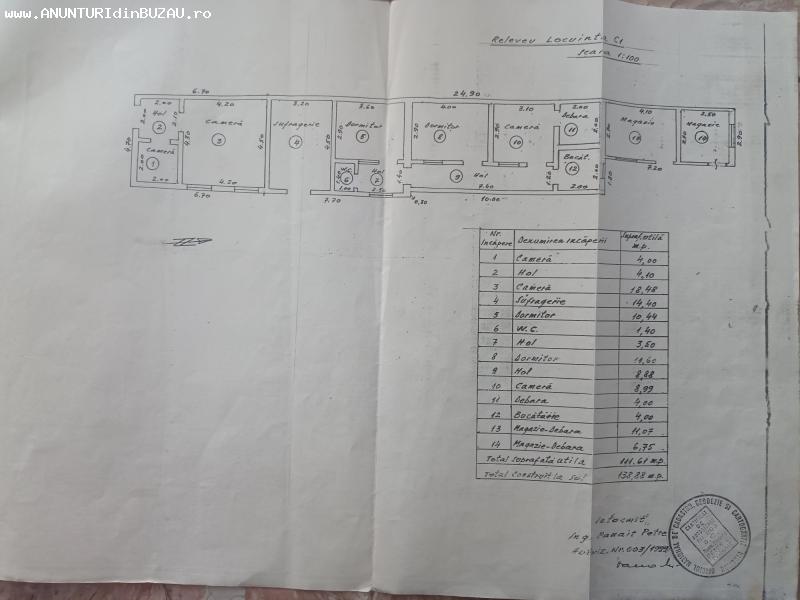 www.ANUNTURIdinBUZAU.ro
Releveu Locuinta C1
Scara 1:100
6.70
24,90
2.00
4,20
3,20
3,60
4.00
3,10
2,00
4,10
2,50
Hol
2
Cameră
3
Sufragerie
4
Dormitor
5
Dormitor
8
Cameră
10
Debara
11
Magazie
Magazie
Cameră
1
W.C.
6
Hol
7
Hol
9
Bucăt.
12
2.00
4,20
1,00
2,50
7.40
2.00
7,20
6.70
7.70
0,30
10.00
Nr. încăpere Denumirea încăperii Supraf. utilă m.p.
1 Cameră 4,00
2 Hol 4,10
3 Cameră 18,48
4 Sufragerie 14,40
5 Dormitor 10,44
6 W.C. 1,40
7 Hol 3,50
8 Dormitor 11,60
9 Hol 8,88
10 Cameră 8,99
11 Debara 4,00
12 Bucătărie 4,00
13 Magazie-Debara 11,07
14 Magazie-Debara 6,75
Total suprafată utila 111.61 m.p.
Total construit la sol 138,88 m.p.
Intocmit,
Ing. Panait Petre
Autoriz. Nr. 003/1999